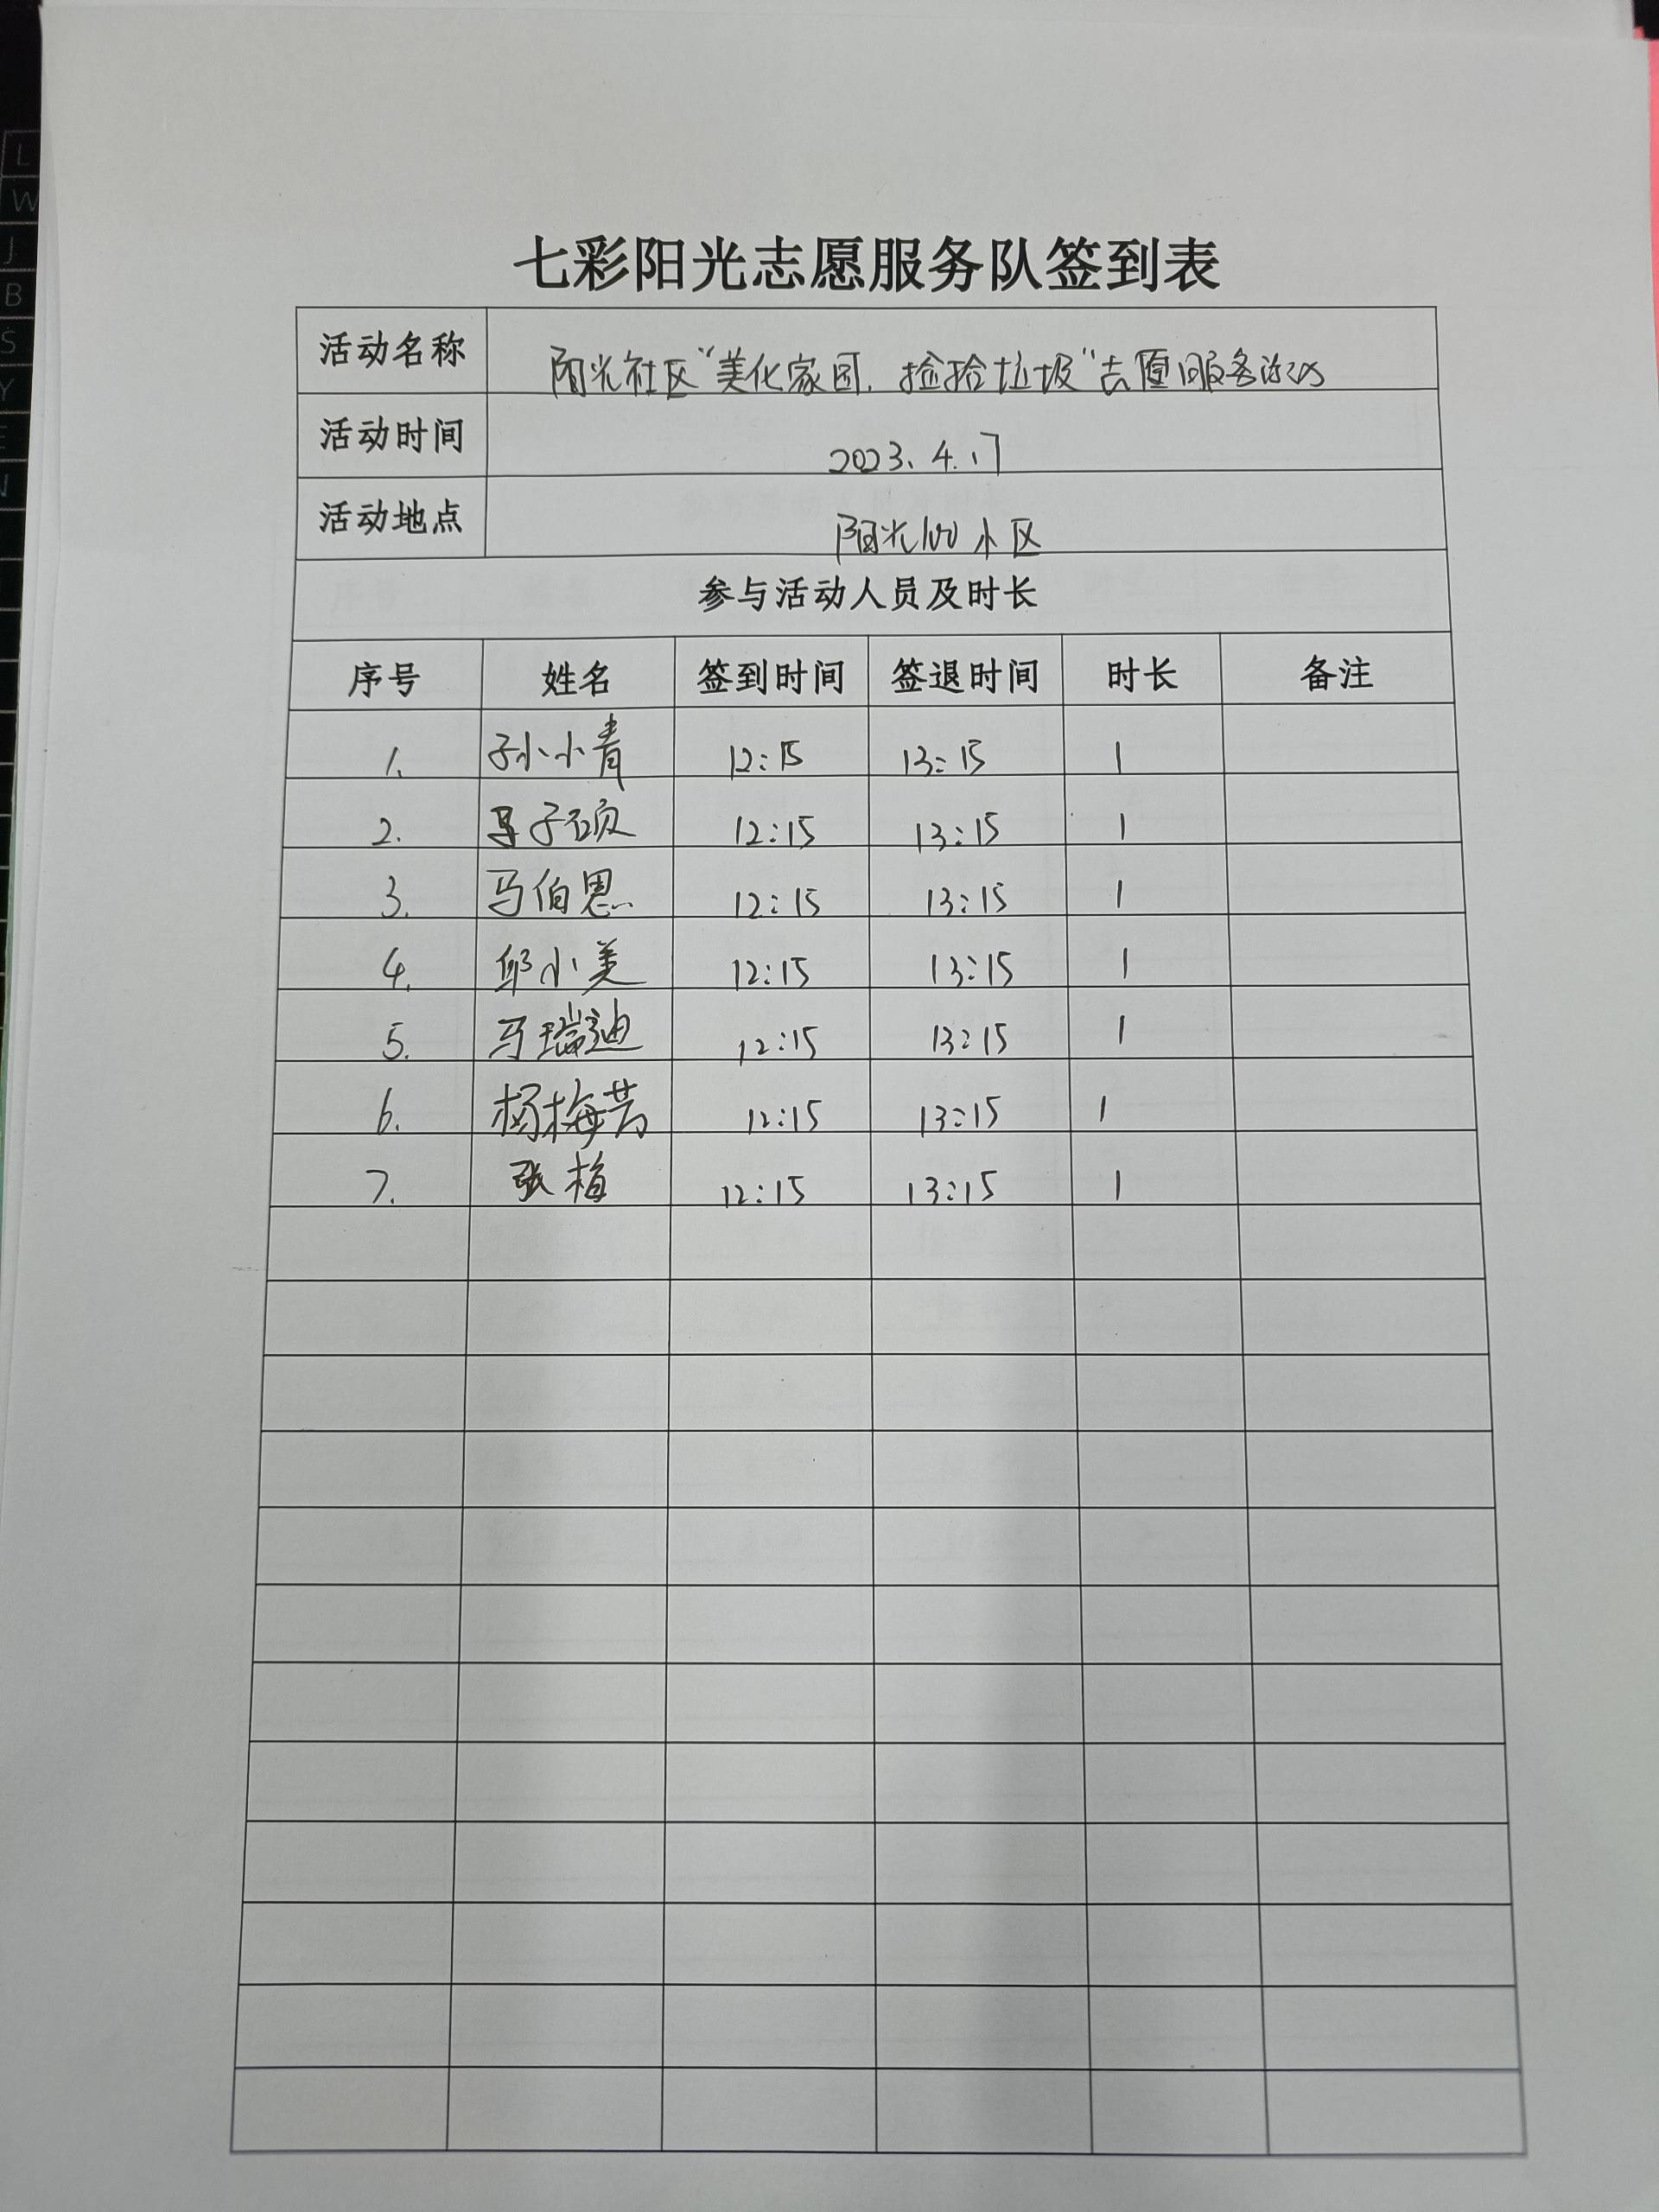 七彩阳光志愿服务队签到表
活动名称 阳光社区"美化家园、捡拾垃圾"志愿服务活动
活动时间 2023.4.17
活动地点 阳光100小区
参与活动人员及时长
序号 姓名 签到时间 签退时间 时长 备注
1. 孙小青 12:15 13:15 1
2. 子硕 12:15 13:15 1
3. 马伯恩 12:15 13:15 1
4. 邱小美 12:15 13:15 1
5. 马瑞迪 12:15 13:15 1
6. 杨梅芳 12:15 13:15 1
7. 张梅 12:15 13:15 1
L
W
J
B
S
Y
E
N